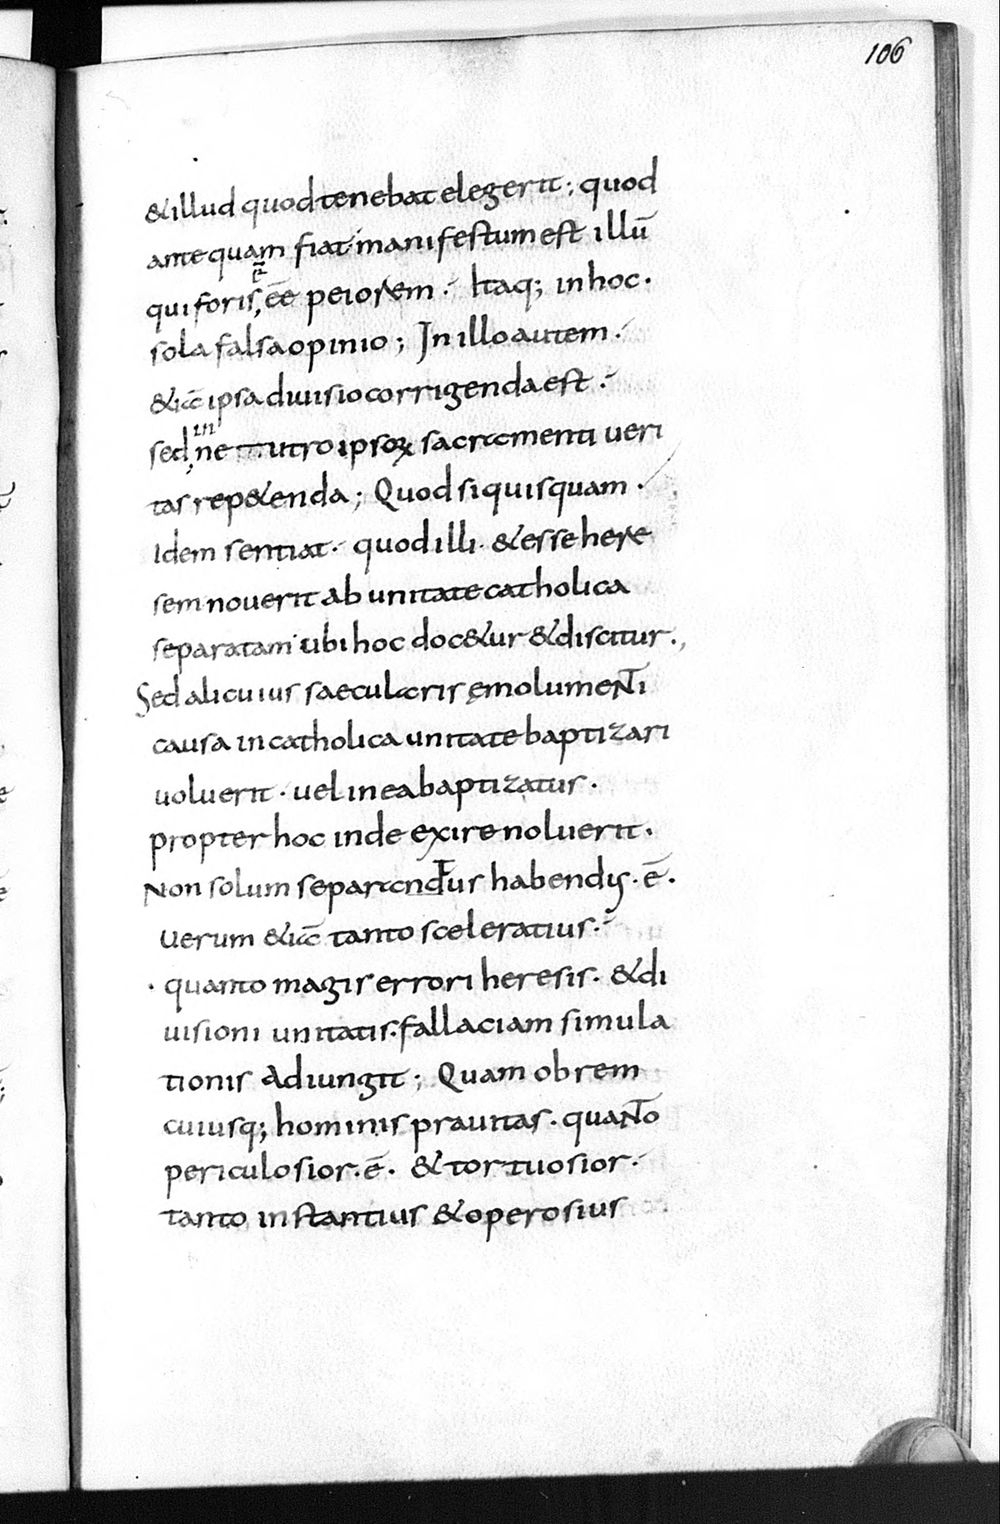 106
&illud quod tenebat elegerit; quod
antequam fiat manifestum est illū
qui foris, ēē peiorem. Itaq; in hoc.
sola falsa opinio; In illo autem.
&icc̄ ipsa diuisio corrigenda est.
in
sed, ne utro ipsoꝝ sacramenti ueri
tas rep&enda; Quod si quisquam.
Idem sentiat. quod illi. & esse here
sem nouerit ab unitate catholica
separatam ubi hoc doc&ur & discitur.,
Sed alicuius saecularis ęmolumeNTi
causa in catholica unitate baptizari
uoluerit. uel in ea baptizatus.
propter hoc inde exire noluerit.
Non solum separandus habendus. ē.
Uerum &icc̄ tanto sceleratius.
. quanto magis errori heresis. & di
uisioni unitatis. fallaciam simula
tionis adiungit; Quam obrem
cuiusq; hominis prauitas. quaNTo
periculosior. ē. & tortuosior.
tanto instantius & operosius